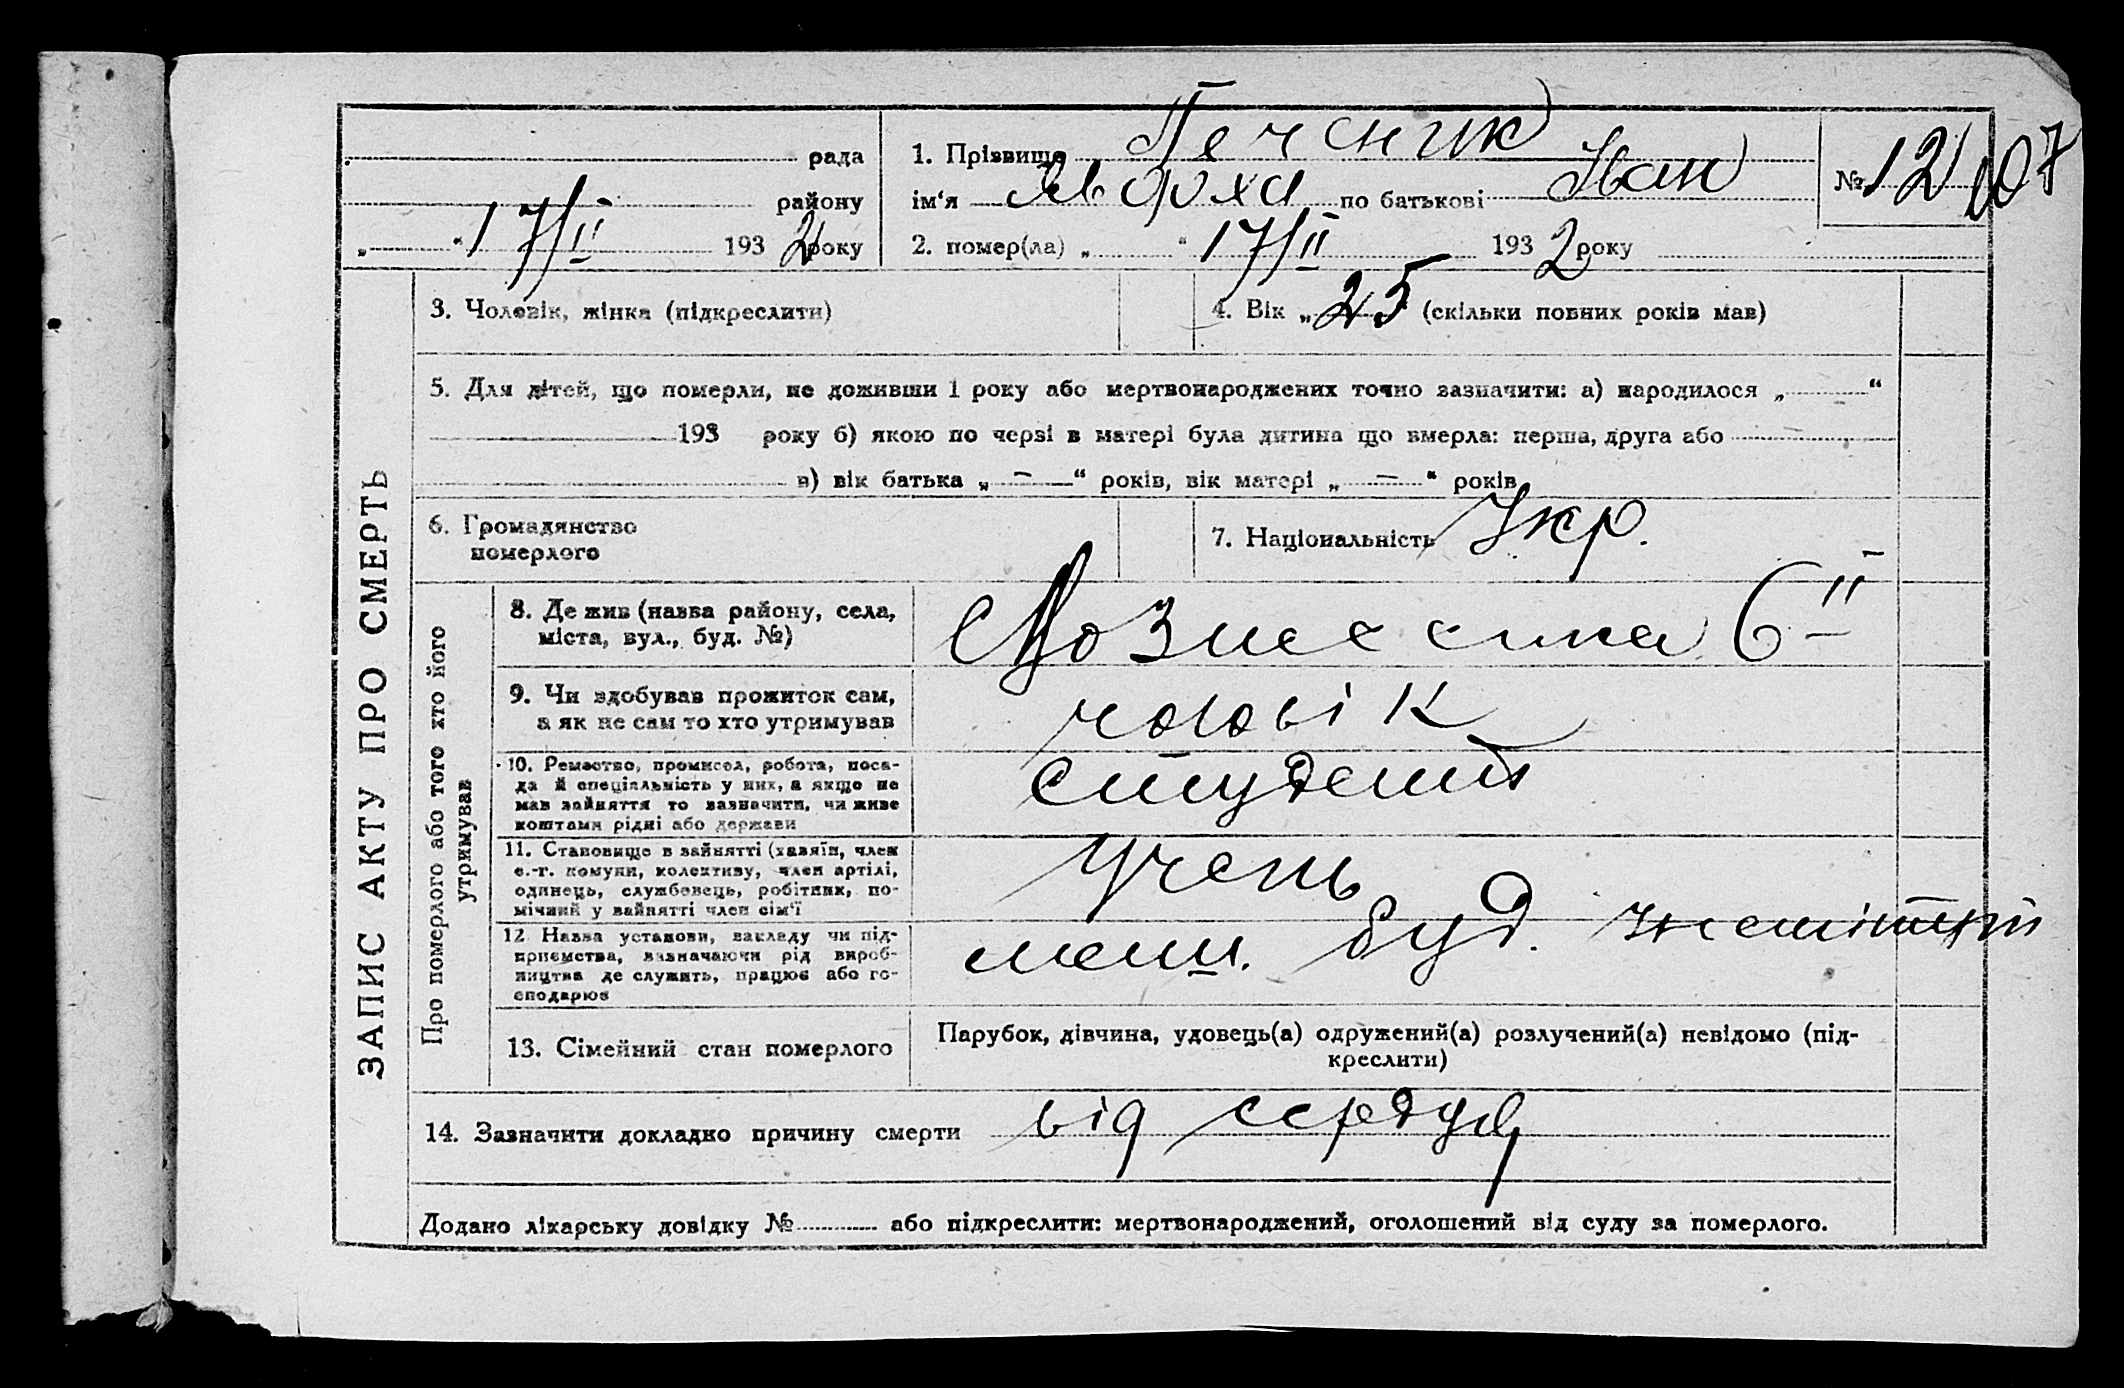 Печеник
рада 1. Прізвище
Іван
№ 12107
району ім'я по батькові
„ “ 17/II 1932 року 2. помер(ла) „ “ 17/II 1932 року
ЗАПИС АКТУ ПРО СМЕРТЬ
3. Чоловік, жінка (підкреслити) 4. Вік „25“ (скільки повних років мав)
5. Для дітей, що померли, не доживши 1 року або мертвонароджених точно зазначити: а) народилося „ “
193 року б) якою по черзі в матері була дитина що вмерла: перша, друга або
в) вік батька „ — “ років, вік матері „ — “ років
6. Громадянство
померлого
7. Національність Укр.
Про померлого або того хто його
утримував
8. Де жив (назва району, села,
міста, вул., буд. №)
6 II
9. Чи здобував прожиток сам,
а як не сам то хто утримував
чоловік
10. Ремество, промисел, робота, поса-
да й спеціяльність у них, а якщо не
мав зайняття то зазначити, чи живе
коштами рідні або держави
студент
11. Становище в зайнятті (хазяїн, член
с.-г. комуни, колективу, член артілі,
одинець, службовець, робітник, по-
мічний у зайнятті член сім'ї
учень
12 Назва установи, закладу чи під-
приємства, зазначаючи рід вироб-
ництва де служить, працює або го-
сподарює
буд.
13. Сімейний стан померлого
Парубок, дівчина, удовець(а) одружений(а) розлучений(а) невідомо (під-
креслити)
14. Зазначити докладно причину смерти від серця
Додано лікарську довідку № або підкреслити: мертвонароджений, оголошений від суду за померлого.